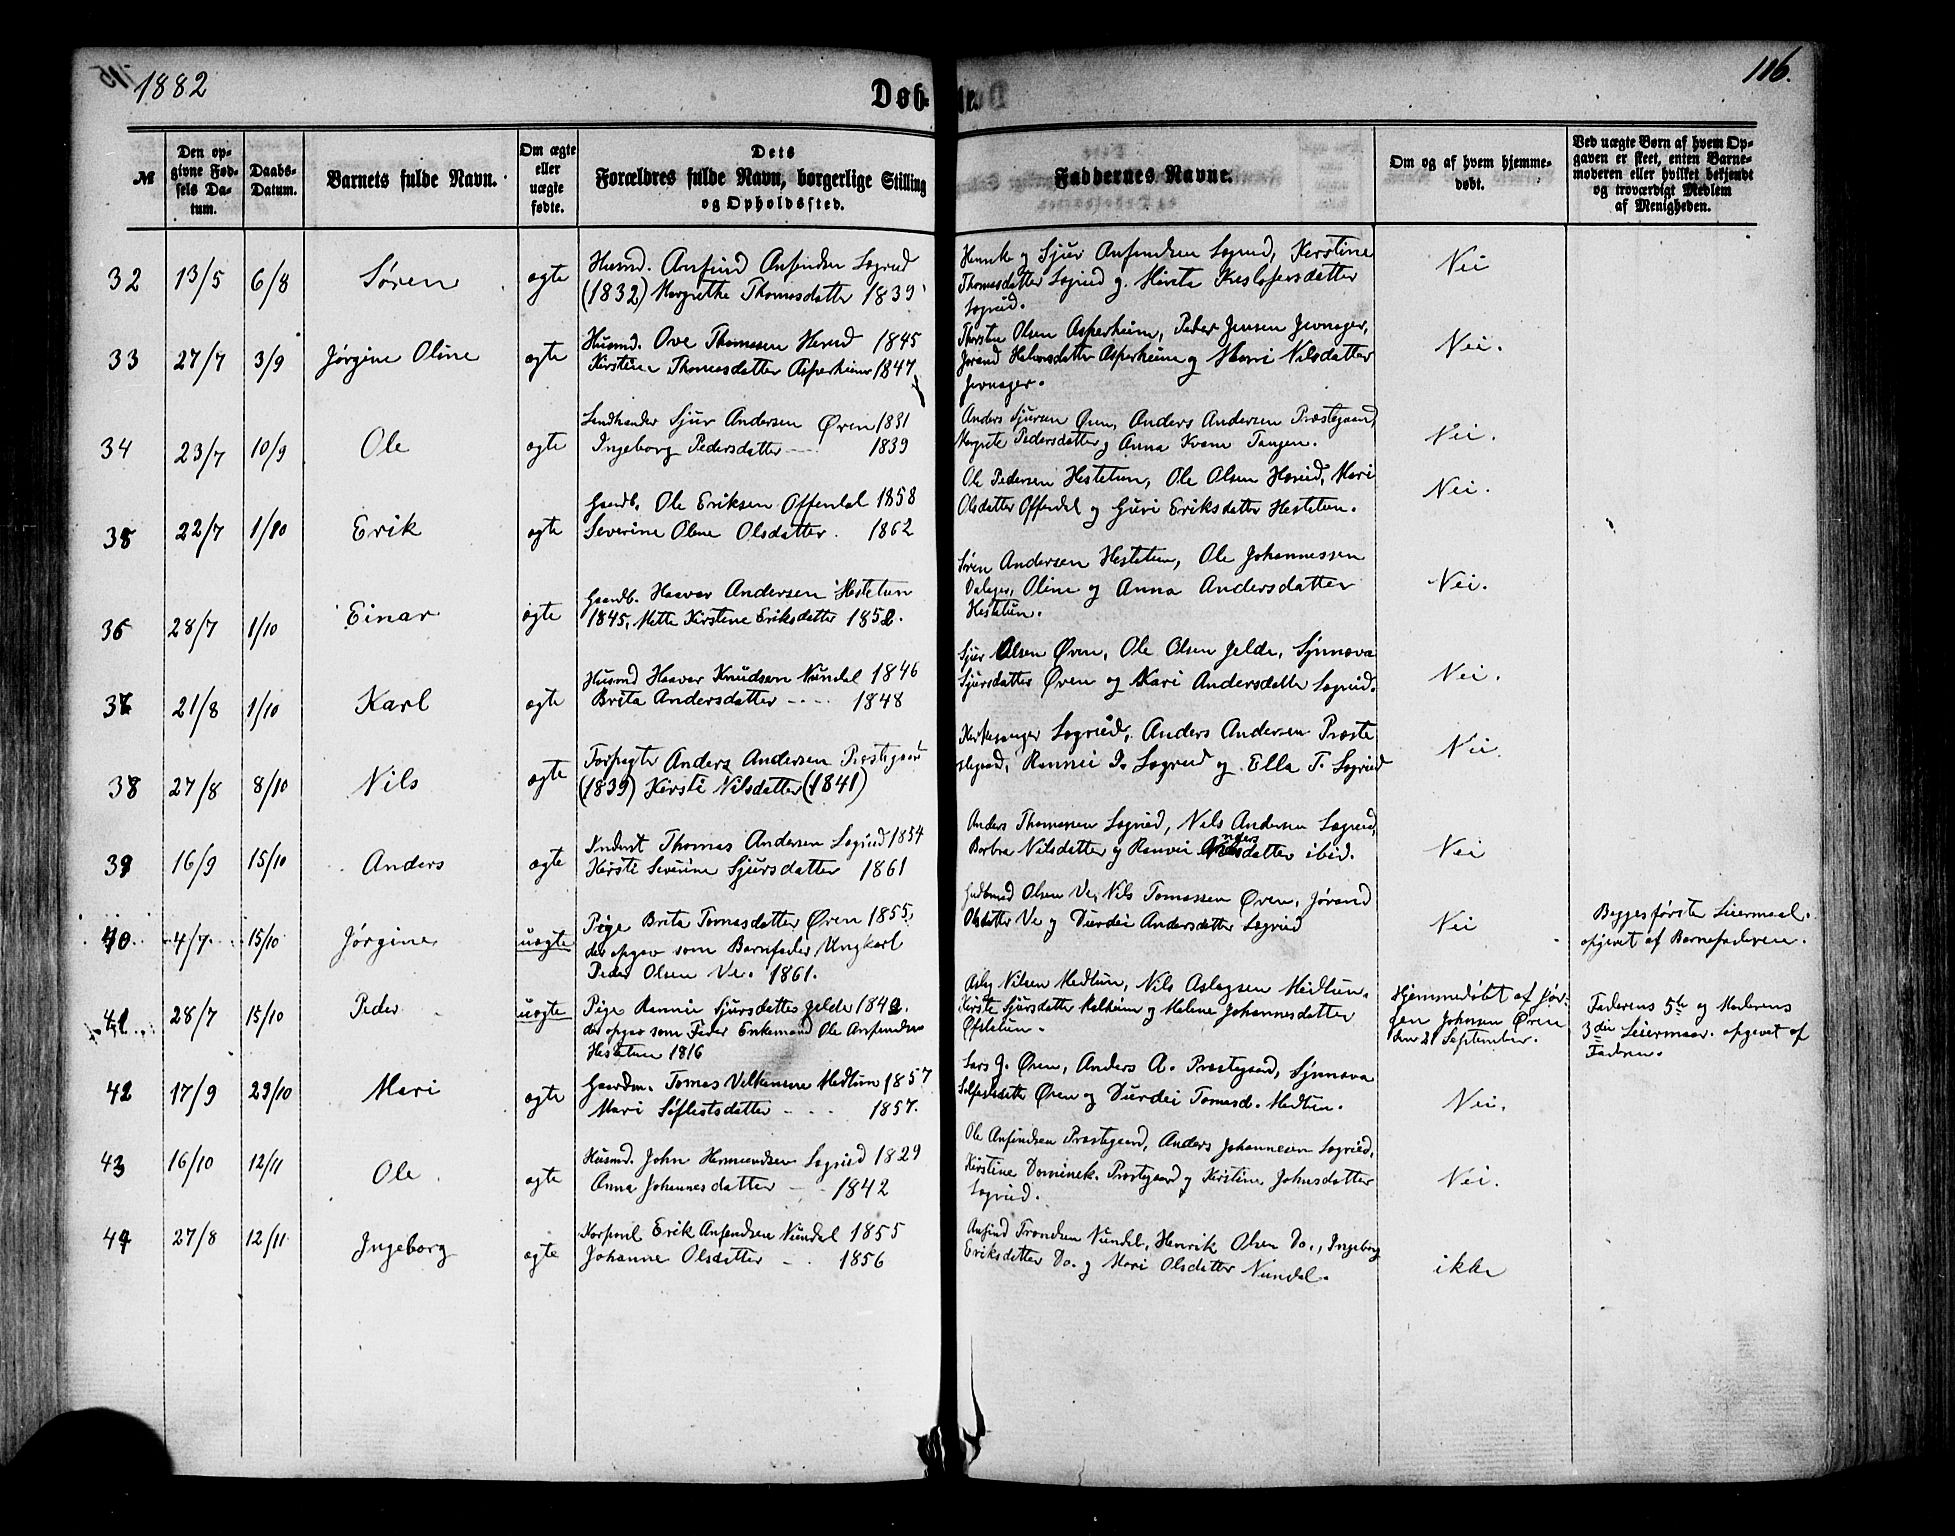 1882
116.
Døbte.
№
Den opgivne Fødsels Datum.
Daabs-Datum.
Barnets fulde Navn.
Om ægte eller uægte fødte.
Dets Forældres fulde Navn, borgerlige Stilling og Opholdssted.
Faddernes Navne.
Om og af hvem hjemmedøbt.
Ved uægte Børn af hvem Opgaven er skeet, enten Barnemoderen eller hvilket bekjendt og troværdigt Medlem af Menigheden.
32 13/5 6/8 Søren ægte
Husmd. Anfind Anfindsen Sogrud
(1832) Margrethe Thomasdatter 1839
Henrik og Sjur Anfindsen Sogrud, Kerstine
Thomasdatter Sogrud og Marta
Sogrud.
Nei
33 27/7 3/9 Jørgine Oline ægte
Husmd. Ove Thomesen Herud 1845
Kirstine Thomasdatter Asperheim 1847
Thorsten Olsen Asperheim, Peder Jensen Jevnager,
Jorand Halvorsdatter Asperheim og Mari Nilsdatter
Jevnager.
Nei.
34 23/7 10/9 Ole ægte
Sjur Andersen Øren 1831
Ingeborg Pedersdatter 1839
Anders Sjursen Øren, Anders Andersen Præstegaard,
Margrete Pedersdatter og Anna Kvam Tangen.
Nei.
35 22/7 1/10 Erik ægte
Gaardb. Ole Eriksen Offerdal 1858
Severine Oline Olsdatter. 1862
Ole Pedersen Hestetun, Ole Olsen Hærud, Mari
Olsdatter Offerdal og Guri Eriksdatter Hestetun.
Nei.
36 28/7 1/10 Einar ægte
Gaardb. Haavar Andersen Hestetun
1845, Mette Kirstine Eriksdatter 1852.
Søren Andersen Hestetun, Ole Johannessen
Oline og Anna Andersdatter
Hestetun.
Nei.
37 21/8 1/10 Karl ægte
Husmd Haavar Knudsen Nundal 1846
Brita Andersdatter 1848
Sjur Olsen Øren, Ole Olsen Gelde, Synnøva
Sjursdatter Øren og Kari Andersdatter Sogrud.
Nei.
38 27/8 8/10 Nils ægte
Forpagter Anders Andersen Præstegaard
(1839) Kirsti Nilsdatter (1841)
Kirkesanger Sogrud, Anders Andersen Præste
stegaard, Rannei I. Sogrud og Ella T. Sogrud
Nei
39 16/9 15/10 Anders ægte
Inderst Thomas Andersen Sogrud 1854
Kirsti Severine Sjursdatter 1861
Anders Thomesen Sogrud, Nils Andersen Sogrud,
Barbra Nilsdatter og Ranvei Andersdatter ibid.
Nei
40 4/7 15/10 Jørgine uægte
Pige Brita Tomasdatter Øren 1855,
der opgav som Barnfader Ungkarl
Peder Olsen Ve. 1861.
Gudmund Olsen Ve, Nils Tomassen Øren, Jørand
Olsdatter Ve og Durdei Andersdatter Sogrud
Nei
Begges første Leiermaal.
opgivet af Barnefaderen.
41 28/7 15/10 Peder uægte
Pige Rannei Sjursdatter Gelde 1842.
der opgav som Fader Enkemand Ole Anfindsen
Hestetun 1816
Aslag Nilsen Hedtun, Nils Aslagsen Hedtun.
Kirste Sjursdatter Malheim og Malene Johannesdatter
Øfstetun.
Hjemmedøbt af Jør-
gen Johnsen Øren
den 2 September.
Faderens 5te og Moderens
3die Leiermaal. opgivet af
Faderen.
42 17/9 29/10 Mari ægte
Gaardm. Tomas Velkensen Hedtun 1857
Mari Søflestsdatter 1857.
Lars J. Øren, Anders A. Præstegaard, Synnøva
Solfestsdatter Øren og Durdei Tomasd. Hedtun.
Nei.
43 16/10 12/11 Ole ægte
Husmd. John Hermundsen Sogrud 1829
Anna Johannesdatter 1842
Ole Anfindsen Præstegaard, Anders Johannesen Sogrud,
Kirstine Dominek. Præstegaard og Kirstine Johnsdatter
Sogrud.
Nei.
44 27/8 12/11 Ingeborg ægte
Korporl Erik Anfindsen Nundal 1855
Johanne Olsdatter 1856
Anfind Trondsen Nundal, Henrik Olsen Do., Ingeborg
Eriksdatter Do. og Mari Olsdatter Nundal.
ikke